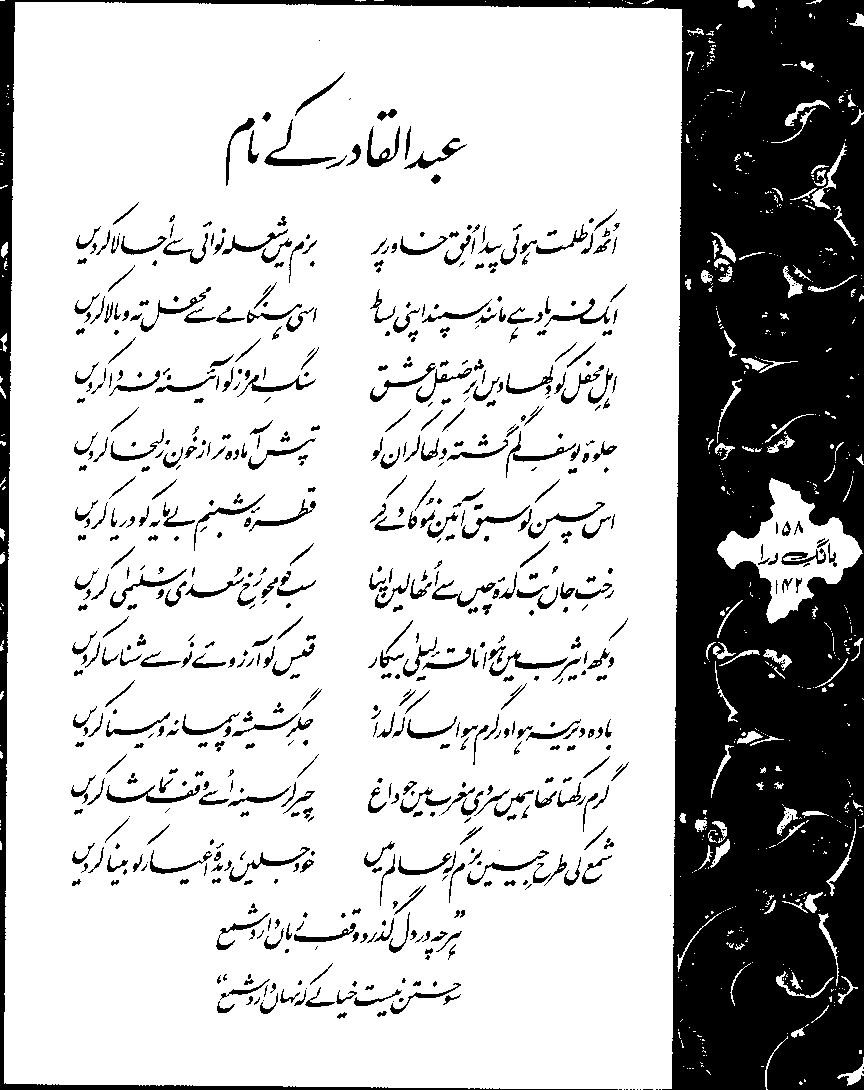 عبدالقادر کے نام
اُٹھ کہ ظلمت ہوئی پیدا اُفقِ خاور پر بزم میں شعلہ نوائی سے اُجالا کر دیں
ایک فریاد ہے مانندِ سپند اپنی بساط اسی ہنگامے سے محفل تہ و بالا کر دیں
اہلِ محفل کو دِکھا دیں اثرِ صَیقلِ عشق سنگِ امروز کو آئینۂ فردا کر دیں
جلوۂ یوسفِ گُم گشتہ دِکھا کر ان کو تپش آمادہ تر از خُونِ زلیخا کر دیں
اس چمن کو سبق آئینِ نُمو کا دے کر قطرۂ شبنمِ بے مایہ کو دریا کر دیں
رختِ جاں بُت کدۂ چیں سے اُٹھا لیں اپنا سب کو محوِ رُخِ سُعدیٰ و سُلیمیٰ کر دیں
دیکھ! یثرب میں ہُوا ناقۂ لیلیٰ بیکار قیس کو آرزوئے نَو سے شناسا کر دیں
بادہ دیرینہ ہو اور گرم ہو ایسا کہ گداز جگرِ شیشہ و پیمانہ و مینا کر دیں
گرم رکھتا تھا ہمیں سردیِ مغرب میں جو داغ چِیر کر سینہ اُسے وقفِ تماشا کر دیں
شمع کی طرح جییں بزم گہِ عالم میں خود جلیں، دیدۂ اغیار کو بینا کر دیں
”ہر چہ در دل گُذرد وقفِ زباں دارد شمع
سوختن نیست خیالے کہ نہاں دارد شمع“
۱۵۸
بانگِ درا
۱۴۲